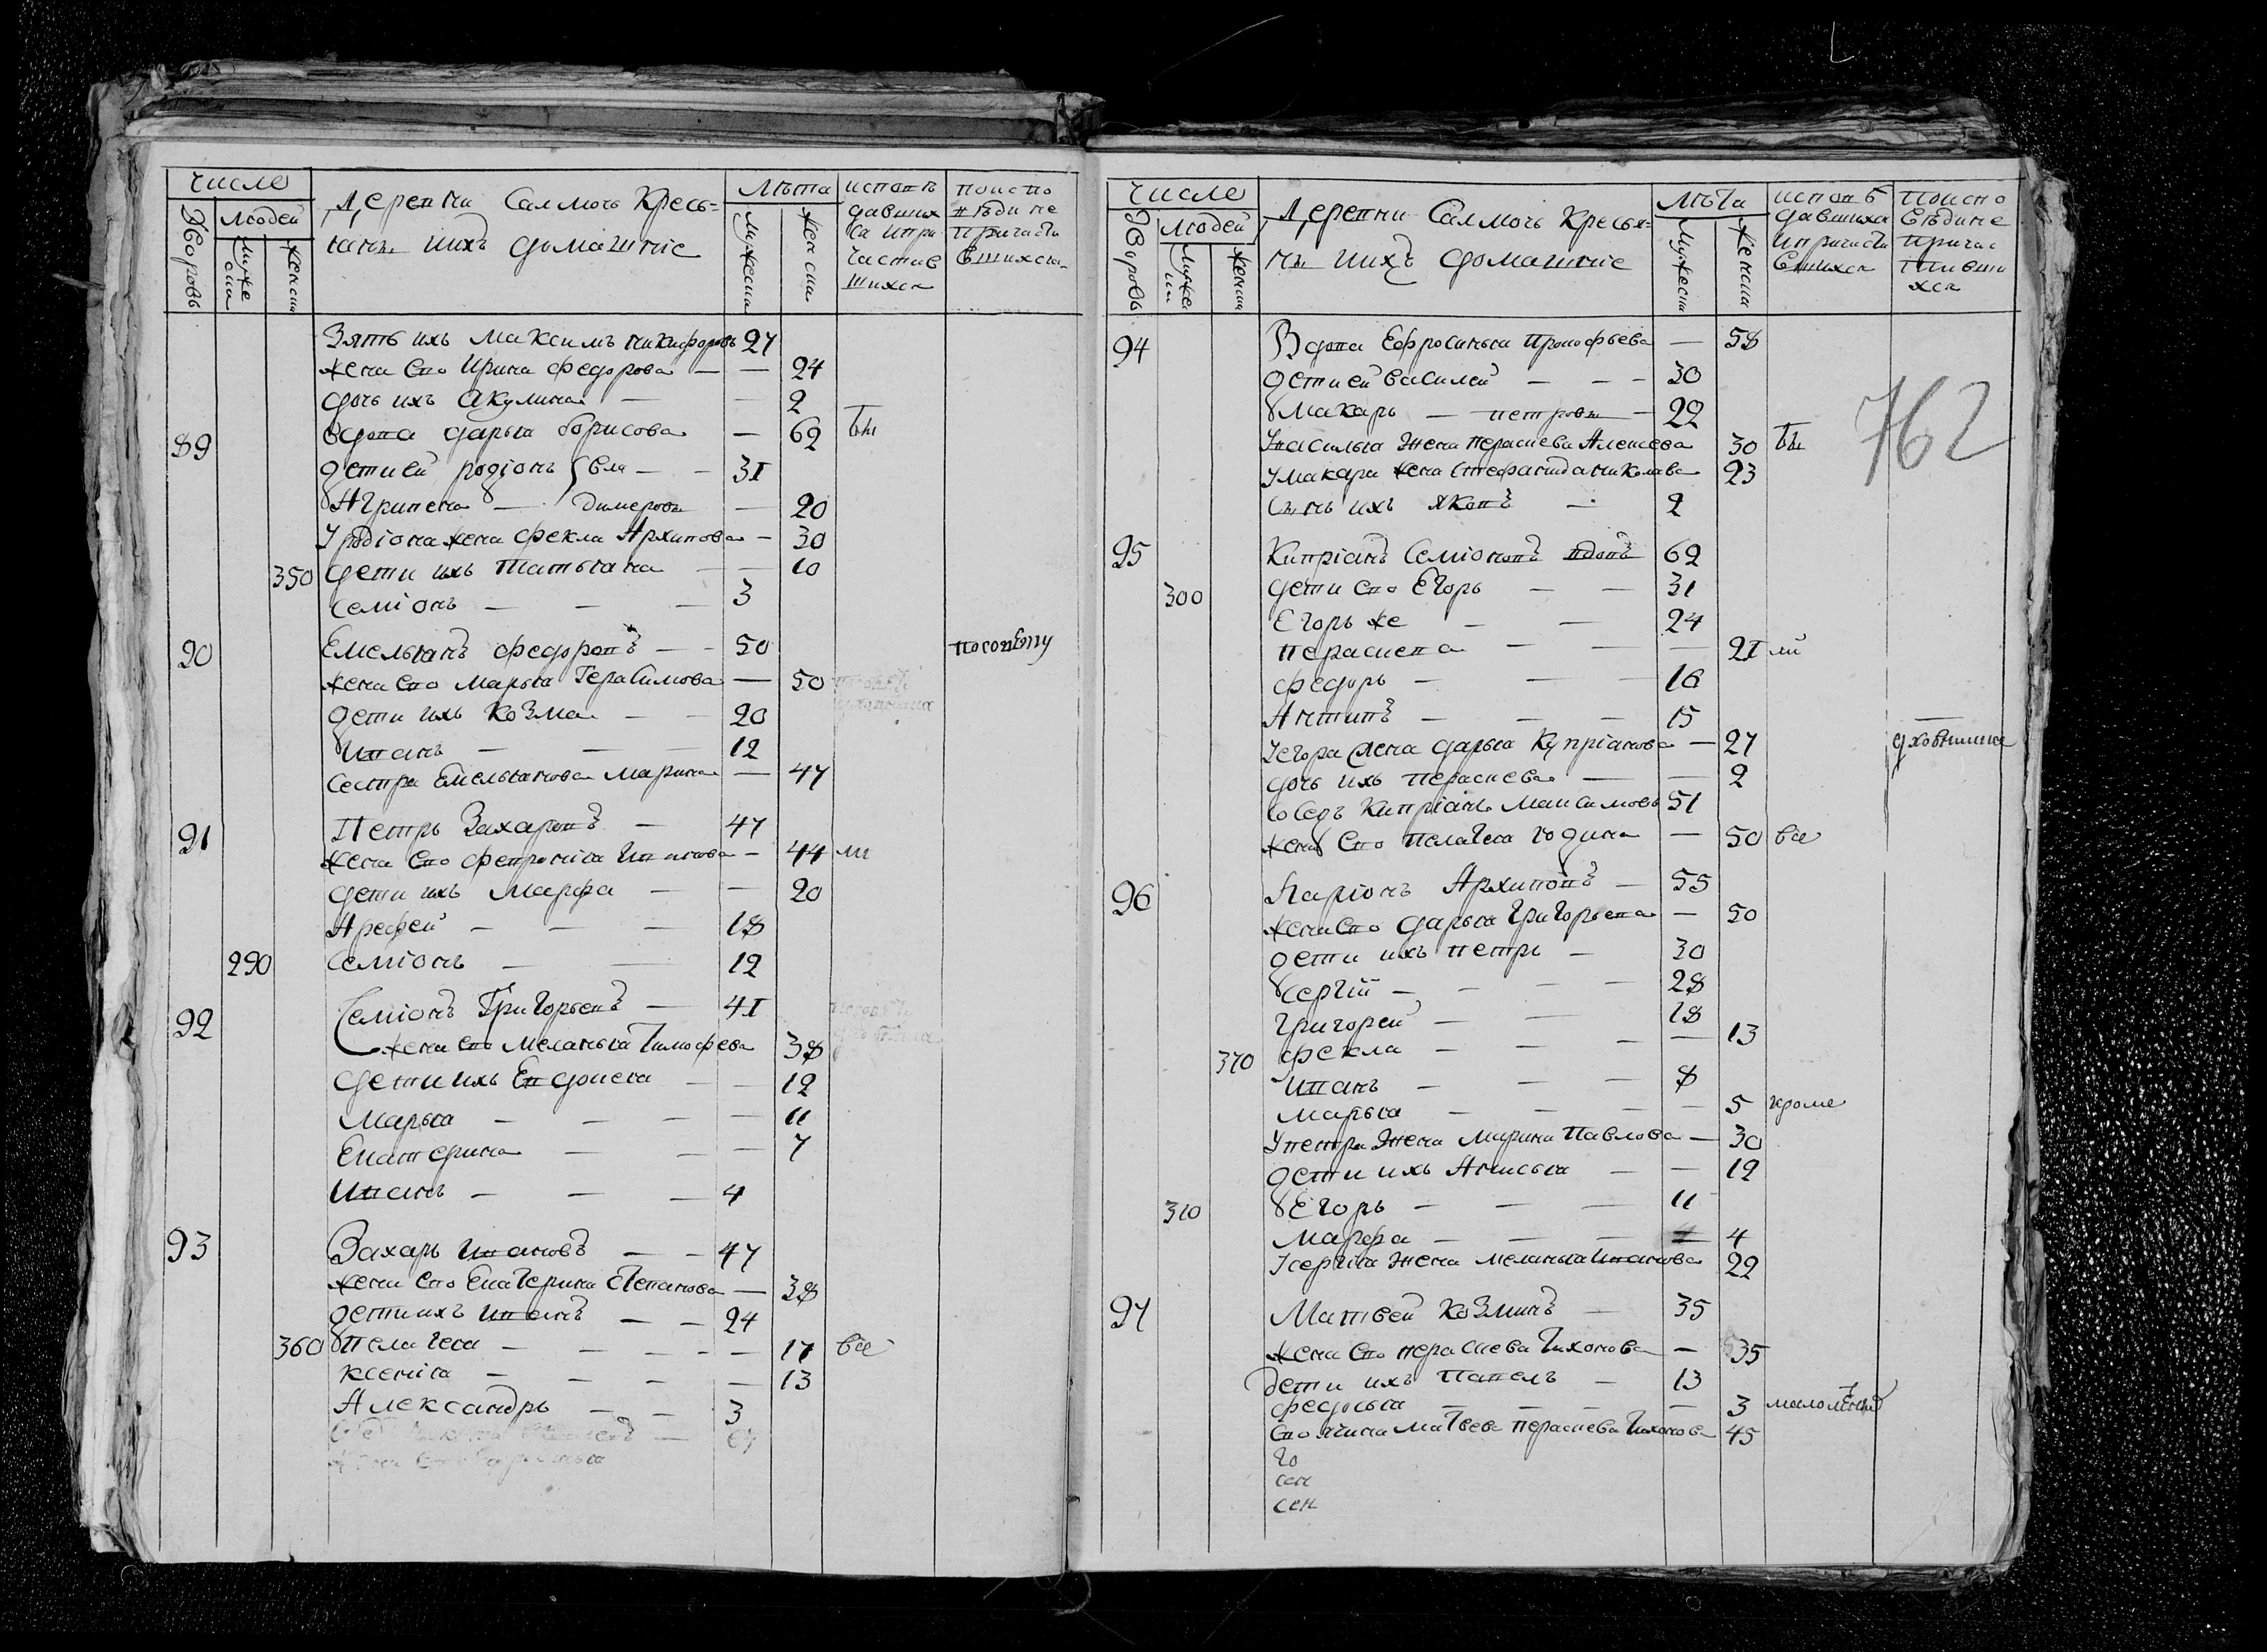 число
Дворовъ
людей
мужеска
женска
Деревни Салмочь Кресь=
янъ ихъ домашніе
лѣта
мужеска
женска
исповѣ
давших
ся и при
частив
шихся
по испо
вѣди не
причасти
вшихся
Зять ихъ Максимъ Никифоровъ 27
жена его Ирина Федорова — — 24
дочь ихъ Акулина — — 2
89 вдова дарья борисова — 62
дети ей родіонъ — — 31
Агрипена — — 20
У родіона жена фекла Архипова — 30
350 дети ихъ Татьяна — — 10
Семіонъ — — — 3
90 Емельянъ федоровъ — — 50
жена его Марья Герасимова — 50
дети ихъ Козма — — 20
Иванъ — — — 12
сестра Емельянова Марина — 47
91 Петръ Захаровъ — 47
жена его февронія Иванова — 44
дети ихъ Марфа — — 20
Арефей — — — 18
290 Семіонъ — — 12
92 Семіонъ Григорьевъ — 41
жена его Меланья Тимофева 38
дети ихъ Евдокея — — 12
Марья — — — — 11
Екатерина — — — 7
Иванъ — — — 4
93 Захаръ Ивановъ — — 47
жена его Екатерина Степанова — 38
дети ихъ Иванъ — — 24
360 Пелагея — — — — — 17 все
Ксенія — — — — 13
Александръ — — 3
число
Дворовъ
людей
мужеска
женска
Деревни Салмочь Кресья=
нъ ихъ домашніе
лѣта
мужеска
женска
исповѣ
давшихся
и причасти
вшихся
по испо
вѣди не
причас
тивши
хся
762
94 Вдова Ефросинья Прокофьева — 58
дети ей василей — — — 30
Макаръ — петровы — 22
У василья жена Пераскева Алексева 30
У макара жена Стефанида николаева 23
Сынъ ихъ Яковъ — 2
95 Кипріанъ Семіоновъ вдовъ 62
300 дети его Егоръ — — 31
Егоръ же — — 24
Пераскева — — — 21
федоръ — — — 16
Антипъ — — — 15
У егора жена дарья Купріанова — 27
дочь ихъ Пераскева — — 2
соседъ Кипріанъ Максимовъ 51
жена его Пелагея родина — 50 все
96 Ларіонъ Архиповъ — 55
жена его дарья Григорьева — 50
дети ихъ петръ — 30
Сергій — — — — 28
Григорей — — 18
370 фекла — — — — 13
Иванъ — — — 8
Марья — — — — 5 кроме
У петра жена Марина Павлова — 30
дети ихъ Анисья — — 12
310 Егоръ — — — 11
Марфа — — — 4
У сергія жена Меланья Иванова 22
97 Матвей Козминъ — 35
жена его Пераскева Тихонова — 35
Дети ихъ Павелъ — 13
федосья — — — — 3
Матвева Пераскева Тихонова 45